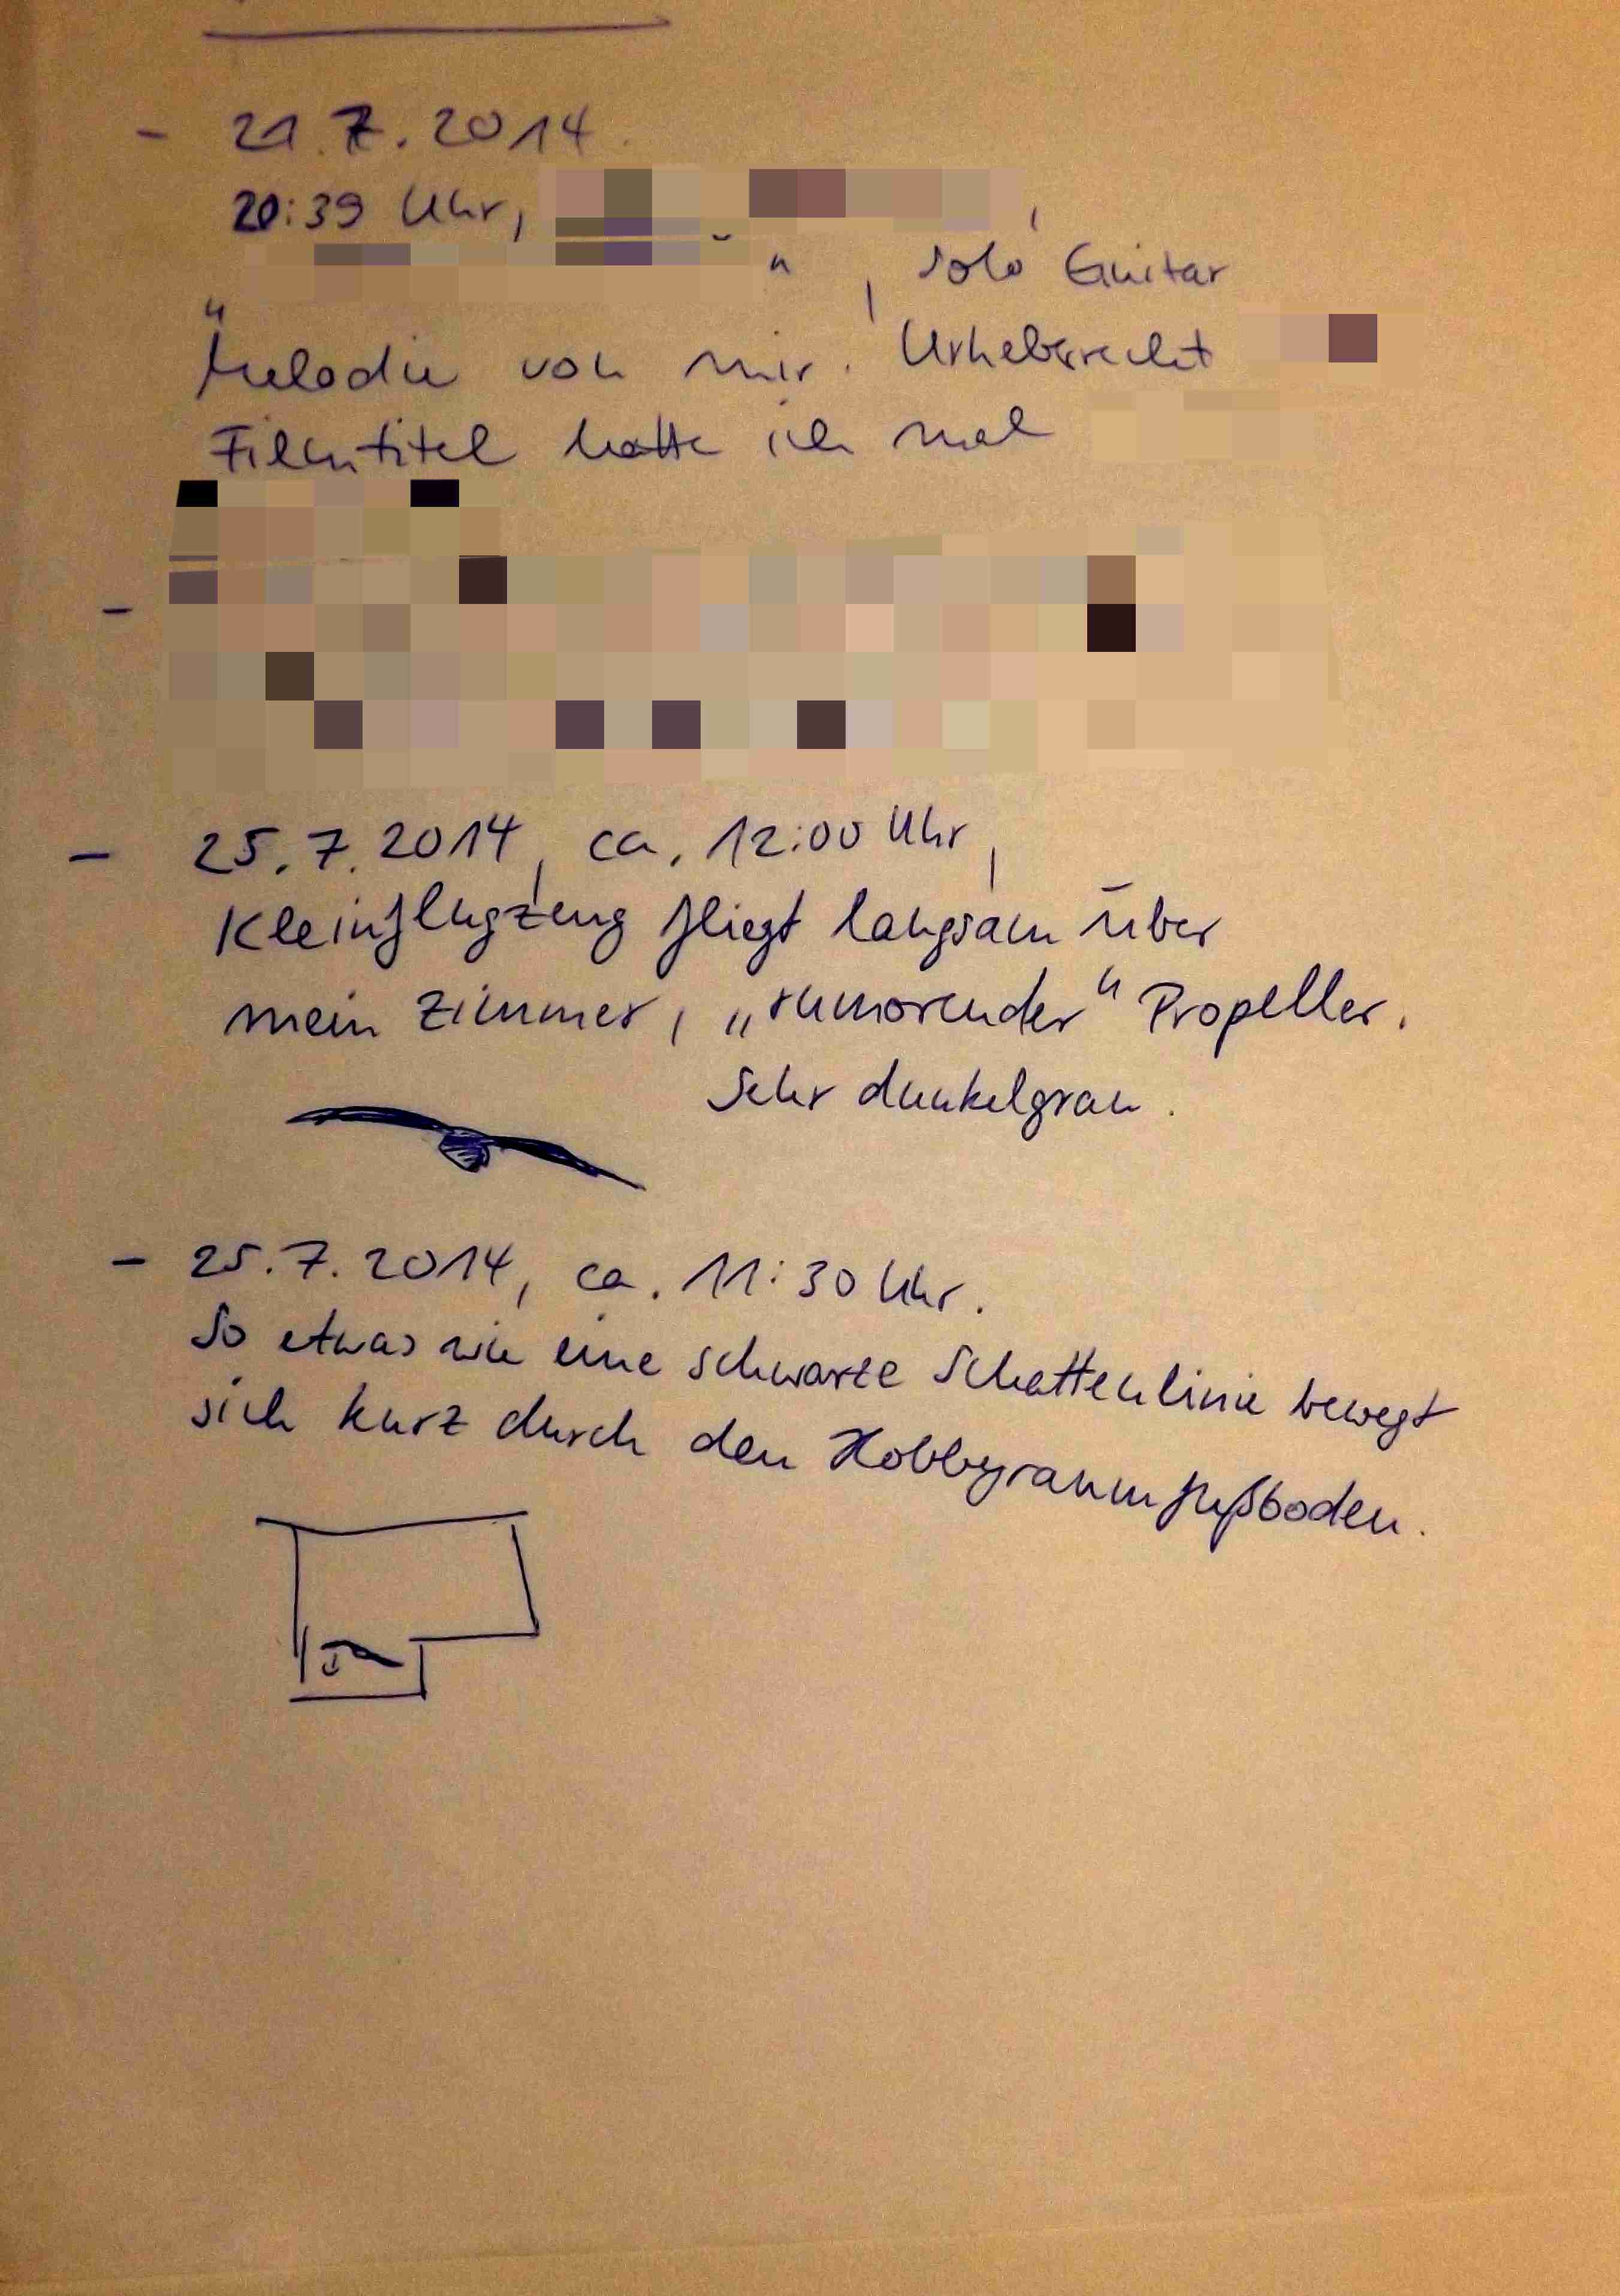 - 21.7.2014.
20:39 Uhr, ,
" " , solo Guitar
Melodie von mir. Urheberrecht
Filmtitel hatte ich mal
-
- 25.7.2014, ca. 12:00 Uhr,
Kleinflugzeug fliegt langsam über
mein Zimmer, „rumorender“ Propeller.
Sehr dunkelgrau.
- 25.7.2014, ca. 11:30 Uhr.
So etwas wie eine schwarze Schattenlinie bewegt
sich kurz durch den Hobbyraumfußboden.